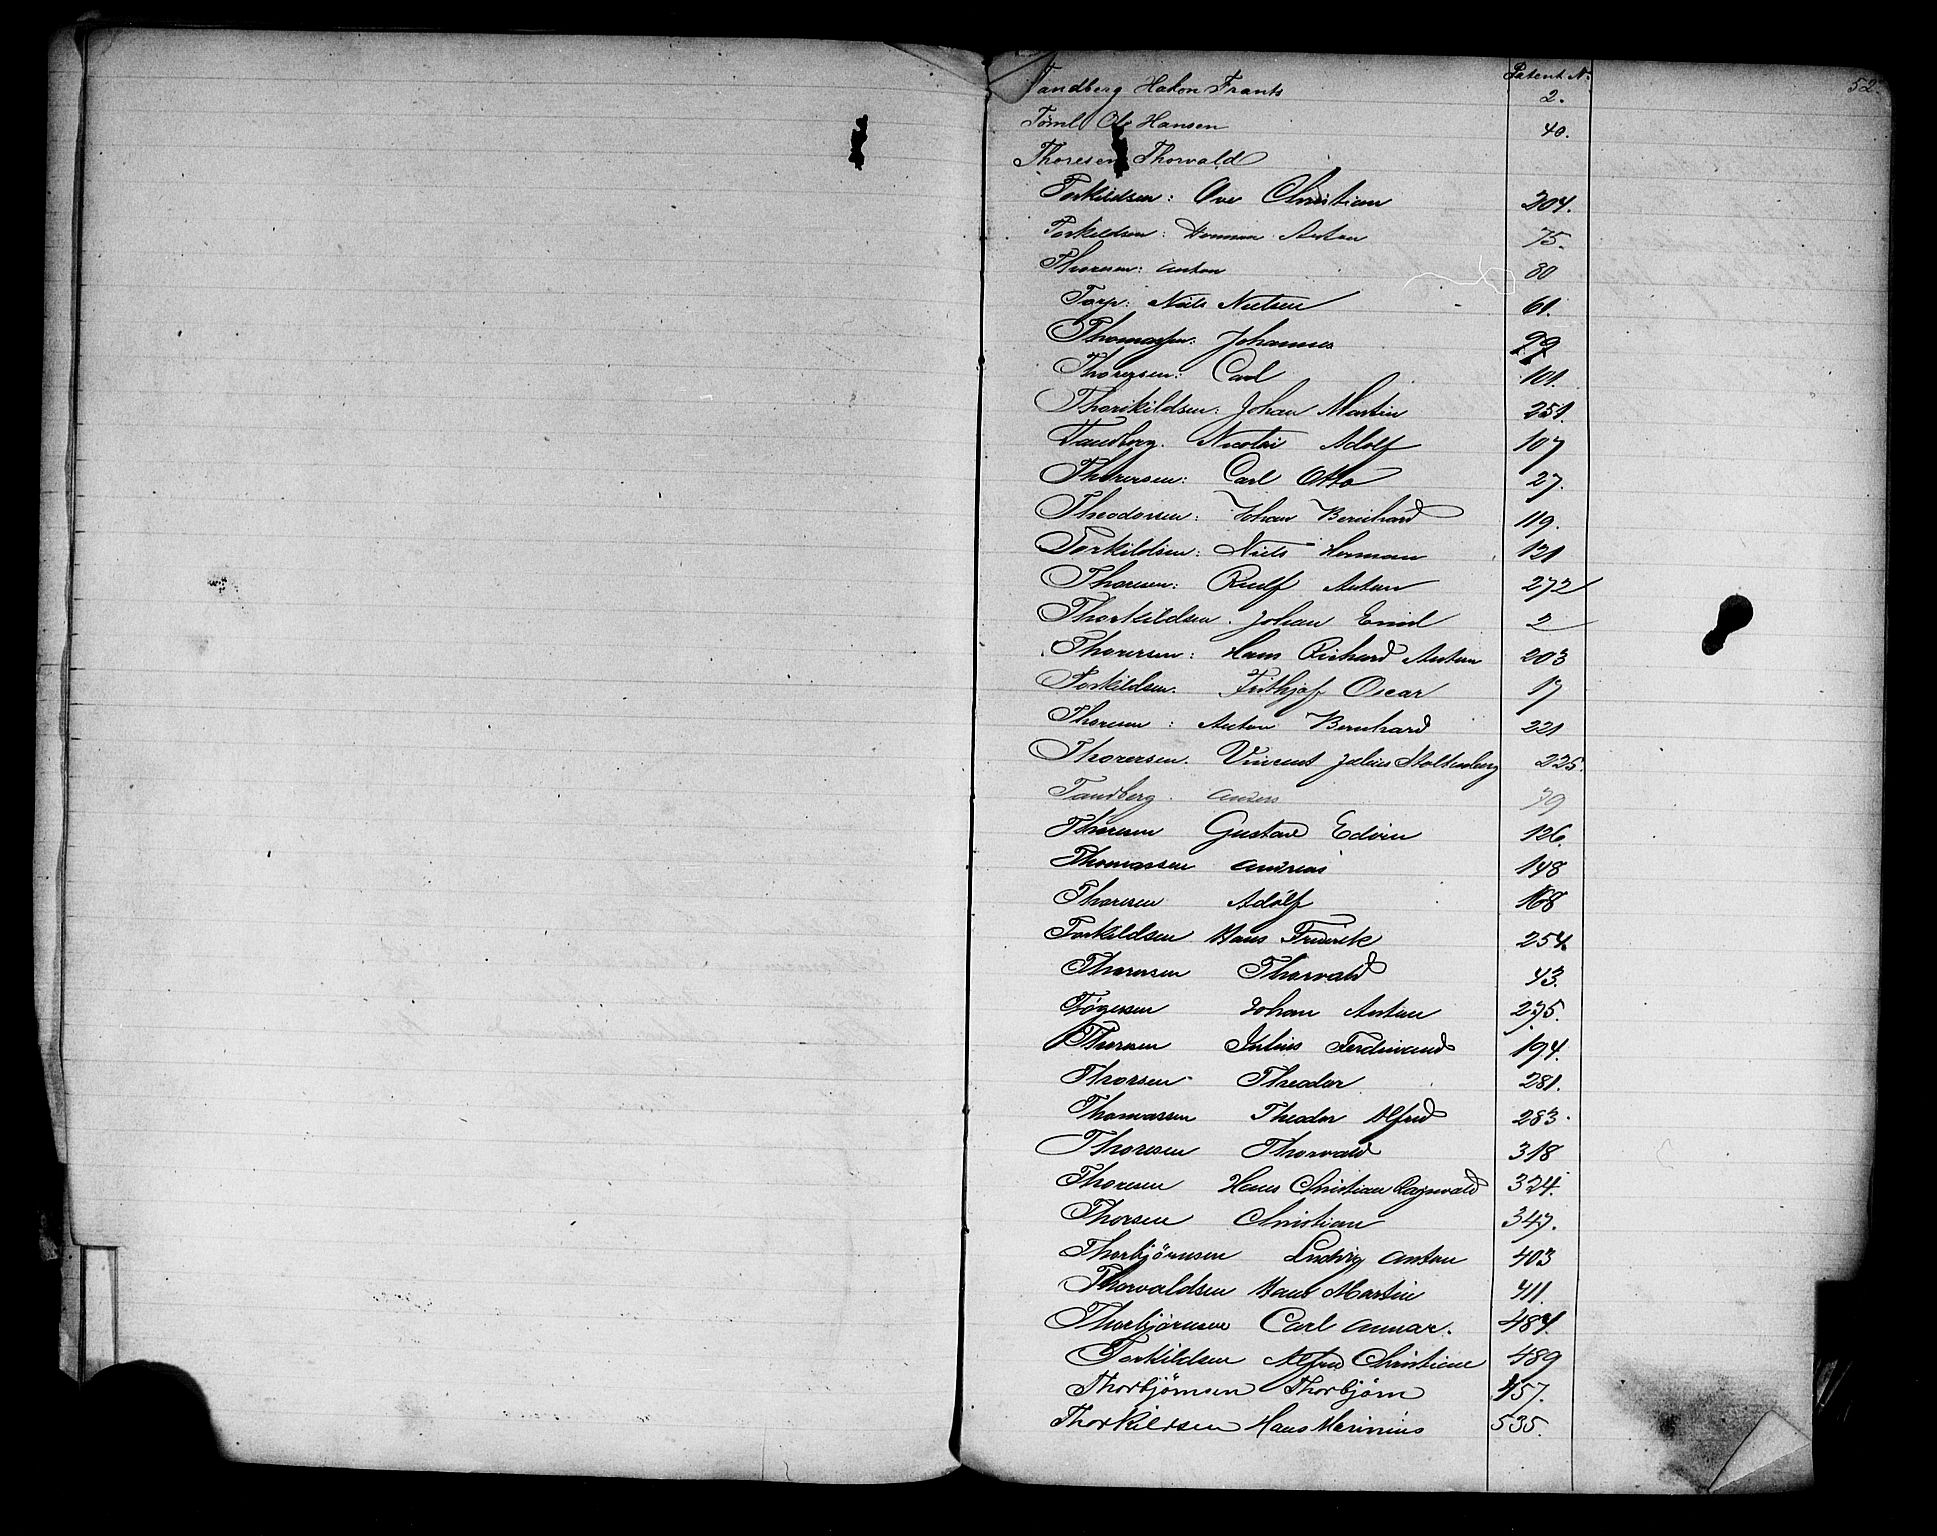 Patent No. 52.
Tandberg Hakon Frants 2.
Tømt Ole Hansen 40.
Thoresen Thorvald
Torkildsen: Ove Christian 204.
Torkildsen: Herman Anton 75.
Thoresen: Anton 80
Torp: Niels Nielsen 61.
Thomassen: Johannes 99
Thoresen: Carl 101.
Thorikildsen: Johan Martin 251.
Tandberg. Nicolai Adolf 107
Thorersen: Carl Otto 27.
Theodorsen: Johan Bernhard 119.
Torkildsen: Niels Herman 121
Thoresen: Rudlf Anton 272
Thorkildsen. Johan Emil 2
Thorersen: Hans Richard Anton 203
Torkildsen. Frithjof Oscar 17
Thoresen: Anton Bernhard 221
Thorersen. Vincent Julius Stoltenberg 225.
Tandberg. Anders 79
Thoresen Gustav Edvin 126.
Thomassen Andreas 148
Thoresen Adolf 168
Torkildsen Hans Fredrik 254.
Thoresen Thorvald 43.
Tøgersen Johan Anton 275.
Thoresen Julius Ferdinand 194.
Thorsen Theodor 281.
Thomassen Theodor Alfred 283.
Thoresen Thorvald 318
Thoresen Hans Christian Ragnvald 324.
Thorsen Christian 347.
Thorbjørnsen Ludvig Anton 403
Thorvaldsen Hans Martin 411
Thorbjørnsen Carl Annar. 484.
Torkildsen Alfred Christian 489
Thorbjörnsen Thorbjörn 457.
Thorkildsen Hans Marinius 535.